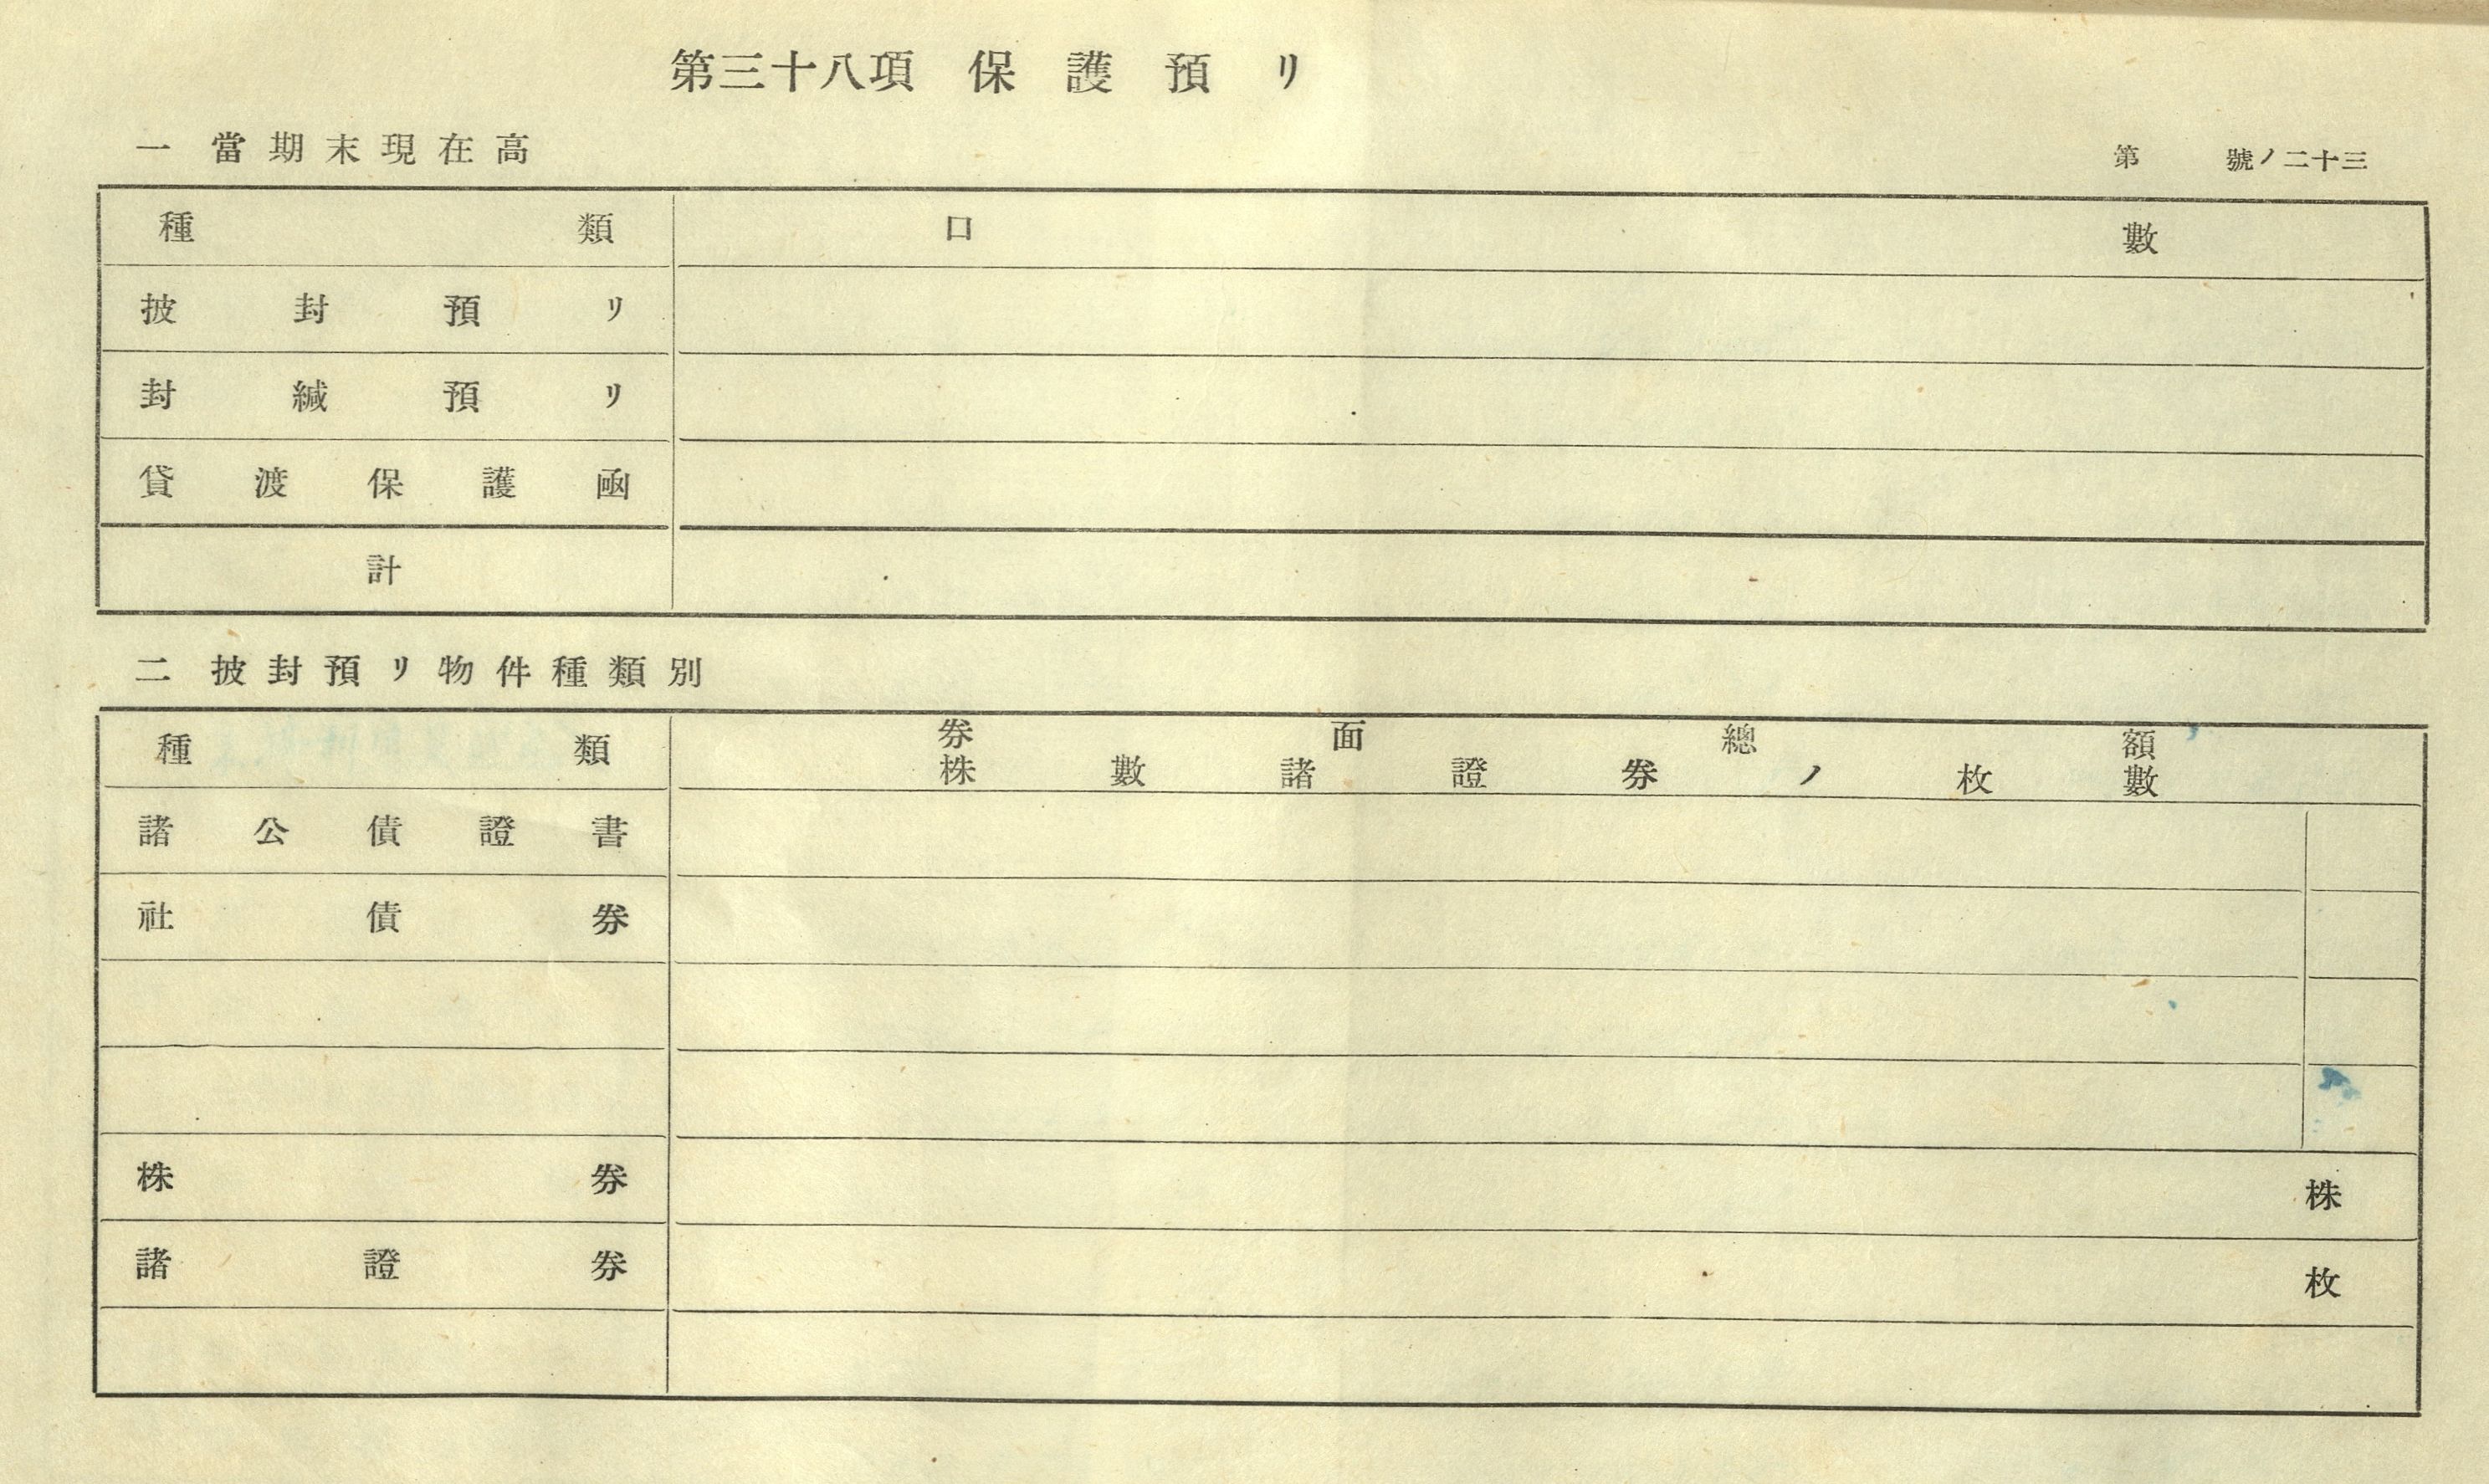 第三十八項 保護預リ
一 當期末現在高
第 號ノ二十三
種類 口數
披封預リ
封緘預リ
貸渡保護凾
計
二 披封預リ物件種類別
種類 券面總額
株數諸證券ノ枚數
諸公債證書
社債券
株券 株
諸證券 枚